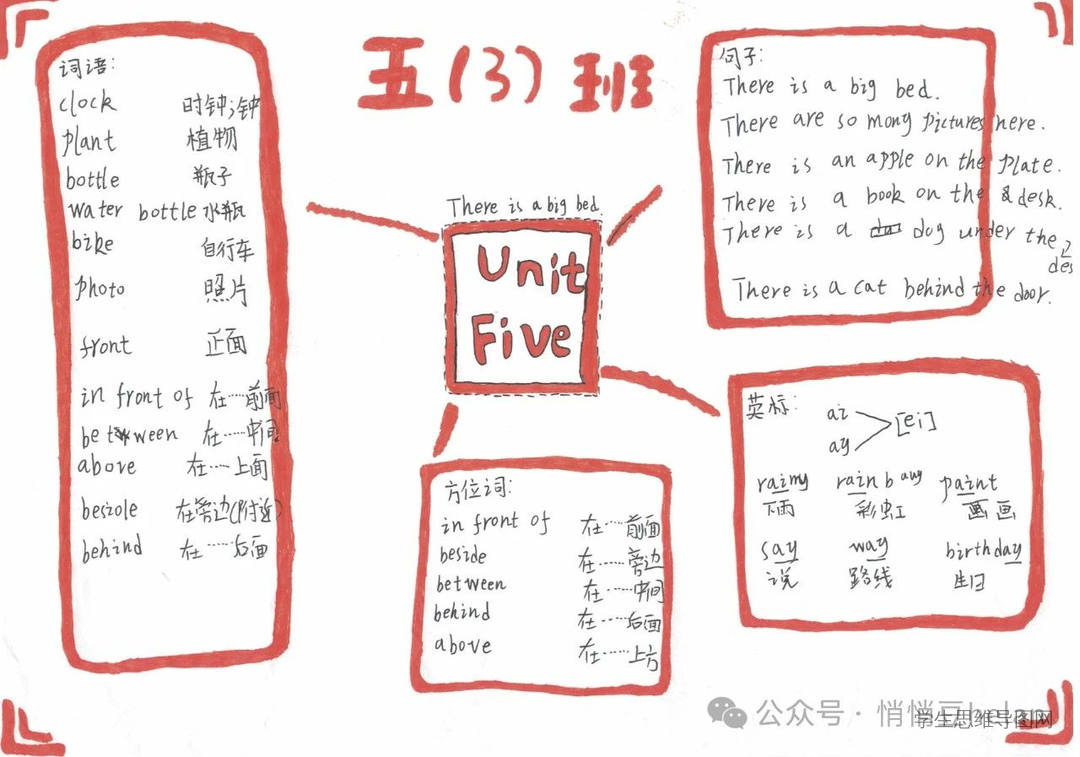 五(3)班
词语:
clock 时钟;钟
plant 植物
bottle 瓶子
water bottle 水瓶
bike 自行车
photo 照片
front 正面
in front of 在……前面
between 在……中间
above 在……上面
beside 在旁边(附近)
behind 在……后面
There is a big bed
Unit
Five
句子:
There is a big bed.
There are so mony pictures here.
There is an apple on the plate.
There is a book on the desk.
There is a dog under the
des
There is a cat behind the door.
方位词:
in front of 在……前面
beside 在……旁边
between 在……中间
behind 在……后面
above 在……上方
英标:
ai
ay
[ei]
rainy rainbauy paint
下雨 彩虹 画画
say way birthday
说 路线 生日
公众号·悄悄豆
学生思维导图网